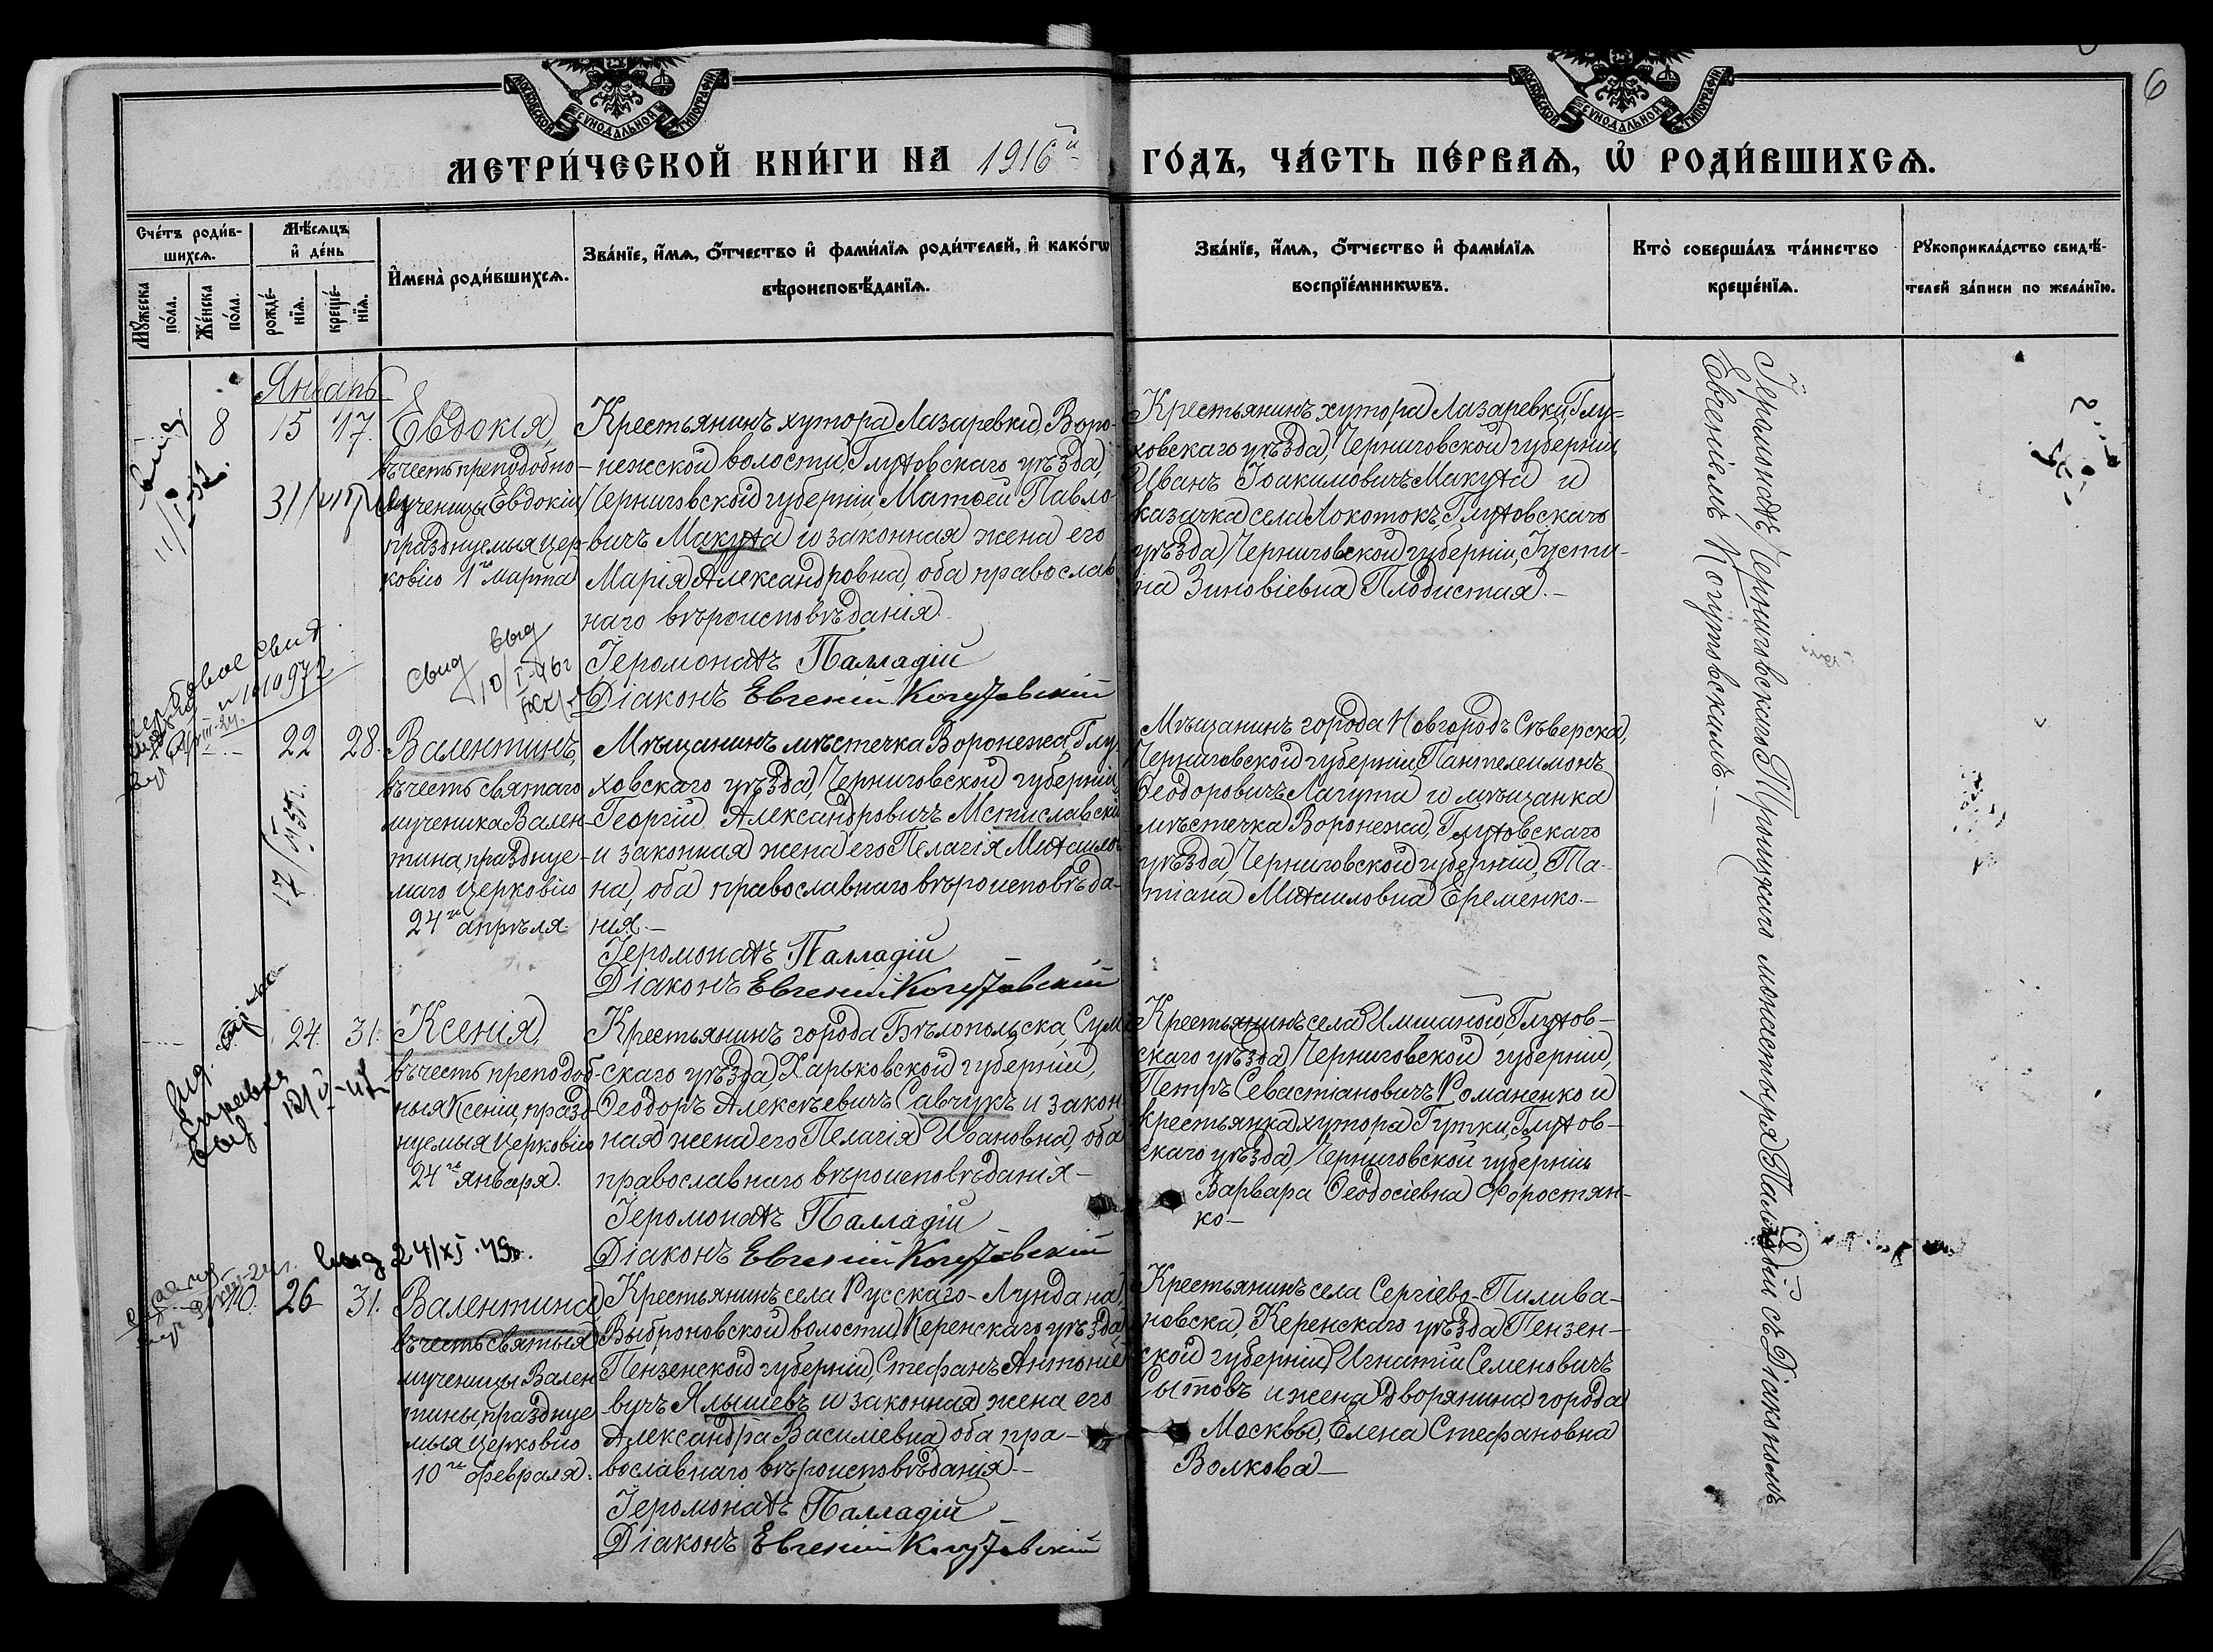 6
МОСКОВСКОЙ СУНОДАЛЬНОЙ ТИПОГРАФІИ
МОСКОВСКОЙ СУНОДАЛЬНОЙ ТИПОГРАФІИ
МЕТРИ́ЧЕСКОЙ КНИ́ГИ НА 1916й ГО́ДЪ, ЧА́СТЬ ПЕ́РВАѦ, Ѡ҆ РОДИ́ВШИХСѦ.
Сче́тъ роди́в-
шихсѧ.
Мꙋ́жеска
по́ла.
Же́нска
по́ла.
Мѣ́сѧцъ
и҆ де́нь
рожде́-
нїѧ.
креще́-
нїѧ.
И҆мена̀ роди́вшихсѧ.
Зва́нїе, и҆́мѧ, ѻ҆́тчество и҆ фами́лїѧ роди́телей, и҆ како́гѡ
вѣроисповѣ́данїѧ.
Зва́нїе, и҆́мѧ, ѻ҆́тчество и҆ фами́лїѧ
воспрїе́мникѡвъ.
Кто̀ соверша́лъ та́инство
креще́нїѧ.
Рꙋкоприкла́дство свидѣ́-
телей за́писи по жела́нїю.
Январь
8 15 17.
Евдокія,
въ честь преподобно-
мученицы Евдокіи,
празднуемыя цер-
ковію 1го Марта
Крестьянинъ хутора Лазаревки, Воро-
нежской волости, Глуховскаго уѣзда,
Черниговской губерніи Матѳей Павло-
вичъ Макуха и законная жена его
Марія Александровна, оба православ
наго вѣроисповѣданія.
Іеромонахъ Палладій
Діаконъ Евгеній Когутовскій
Крестьянинъ хутора Лазаревки, Глу-
ховскаго уѣзда, Черниговской губерніи,
Иванъ Іоакимовичъ Макуха и
казачка села Локотокъ, Глуховскаго
уѣзда, Черниговской губерніи, Іусти-
на Зиновіевна Плодистая.-
11/I-52
свид выд
10/I-46г
22 28.
Валентинъ,
въ честь святаго
мученика Вален-
тина, празднуе-
маго церковію
24го апрѣля.
Мѣщанинъ мѣстечка Воронежа, Глу-
ховскаго уѣзда, Черниговской губерніи,
Георгій Александровичъ Мстиславскій
и законная жена его Пелагія Михаилов
на, оба православнаго вѣроисповѣда-
нія.-
Іеромонахъ Палладій
Діаконъ Евгеній Когутовскій
Мѣщанинъ города Новгородъ Сѣверска,
Черниговской губерніи, Пантелеимонъ
Ѳеодоровичъ Лагута и мѣщанка
мѣстечка Воронежа, Глуховскаго
уѣзда, Черниговской губерніи, Та-
тіана Михаиловна Еременко.-
24. 31.
Ксенія,
въ честь преподоб-
ныя Ксеніи, празд-
нуемыя церковію
24го января.
Крестьянинъ города Бѣлопольска, Сум
скаго уѣзда, Харьковской губерніи,
Ѳеодоръ Алексѣевичъ Савчукъ и закон
ная жена его Пелагія Ивановна, оба
православнаго вѣроисповѣданія-
Іеромонахъ Палладій
Діаконъ Евгеній Когутовскій
Крестьянинъ села Имшаной, Глухов-
скаго уѣзда, Черниговской губерніи,
Петръ Севастіановичъ Романенко и
крестьянка хутора Гутки, Глухов-
скаго уѣзда, Черниговской губерніи
Варвара Ѳеодосіевна Форостян-
ко-
справка
выд 24/XI-49г.
10. 26 31.
Валентина,
въ честь святыя
мученицы Вален
тины, празднуе
мыя церковію
10го февраля.
Крестьянинъ села Русскаго-Лундана,
Выброновской волости, Керенскаго уѣзда,
Пензенской губерніи, Стефанъ Антоніе
вичъ Ялышевъ и законная жена его
Александра Василіевна, оба пра-
вославнаго вѣроисповѣданія.-
Іеромонахъ Палладій
Діаконъ Евгеній Когутовскій
Крестьянинъ села Сергіево-Пилива-
новска, Керенскаго уѣзда, Пензен-
ской губерніи, Игнатій Семеновичъ
Сытовъ и жена дворянина города
Москвы, Елена Стефановна
Волкова-
Іеромонахъ Черниговскаго Троицкаго монастыря Палладій съ Діакономъ
Евгеніемъ Когутовскимъ.-